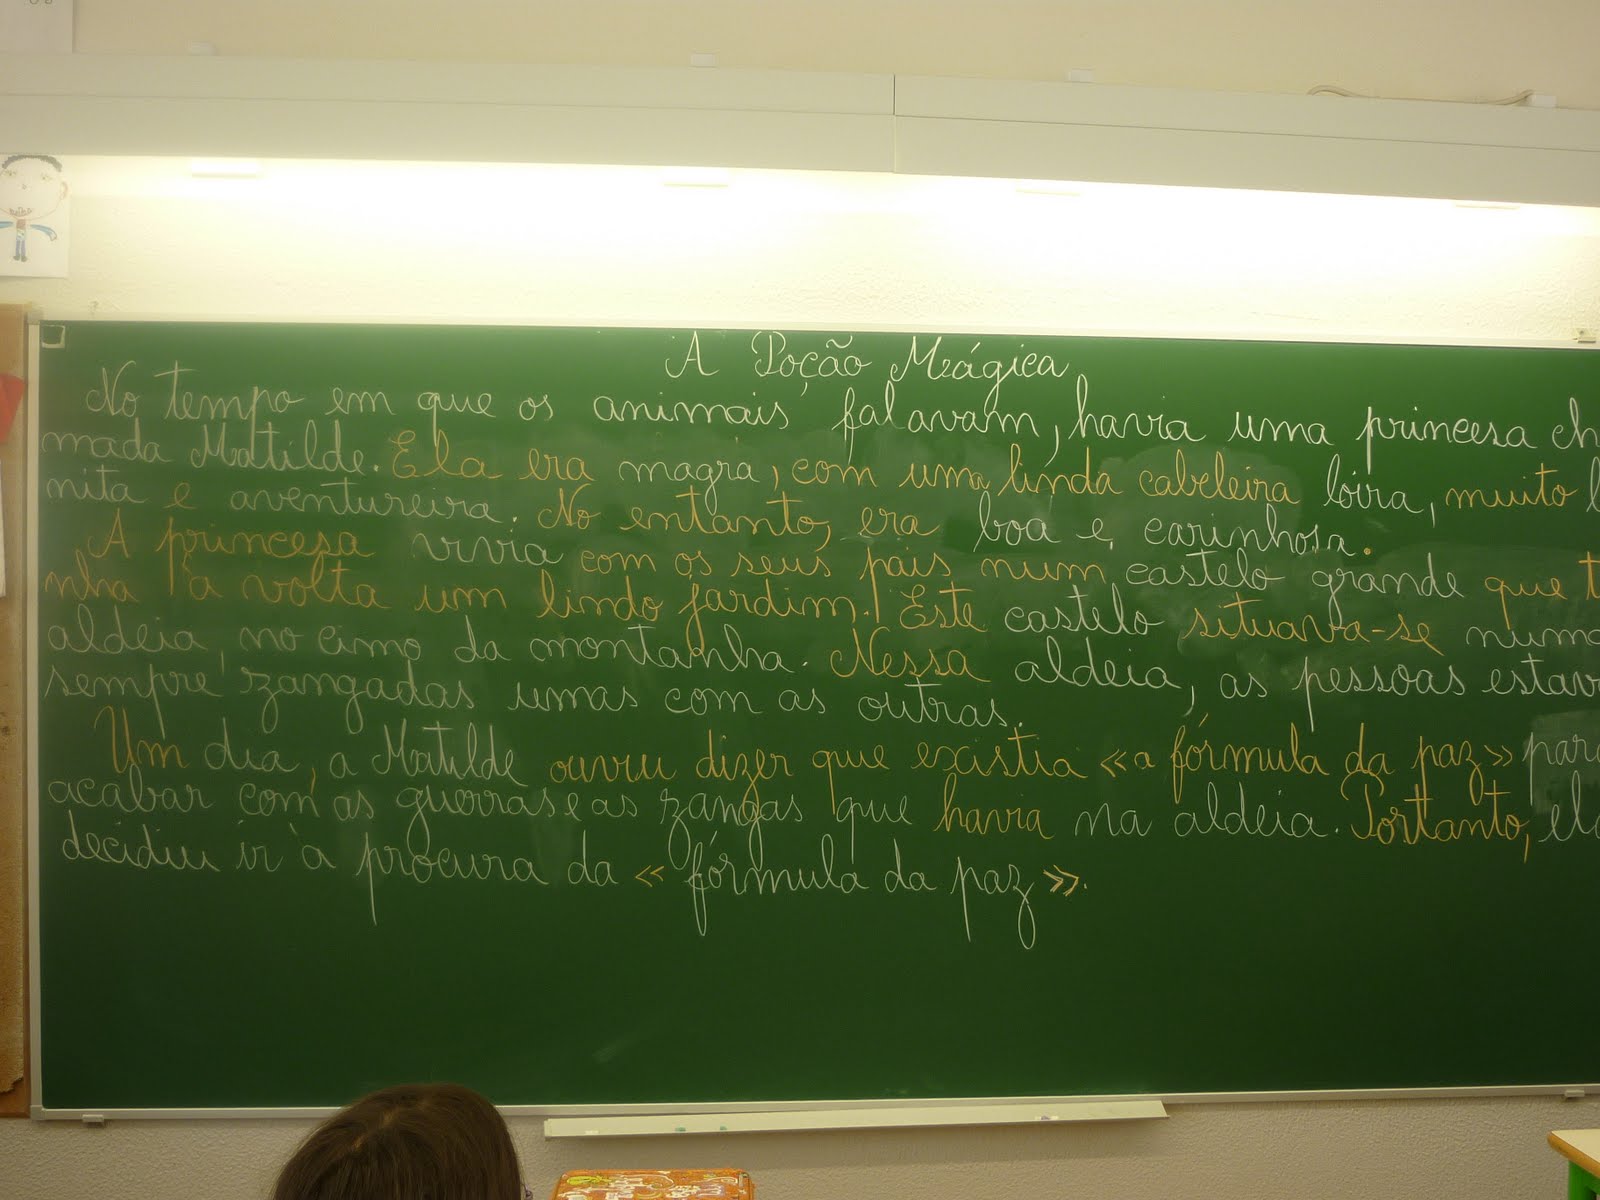 A Poção Mágica
No tempo em que os animais falavam, havia uma princesa cha
mada Matilde. Ela era magra, com uma linda cabeleira loira, muito b
nita e aventureira. No entanto, era boa e carinhosa.
A princesa vivia com os seus pais num castelo grande que ti
nha à volta um lindo jardim. Este castelo situava-se numa
aldeia, no cimo da montanha. Nessa aldeia, as pessoas estav
sempre zangadas umas com as outras.
Um dia, a Matilde ouviu dizer que existia «a fórmula da paz» para
acabar com as guerras e as zangas que havia na aldeia. Portanto, ela
decidiu ir à procura da «fórmula da paz».